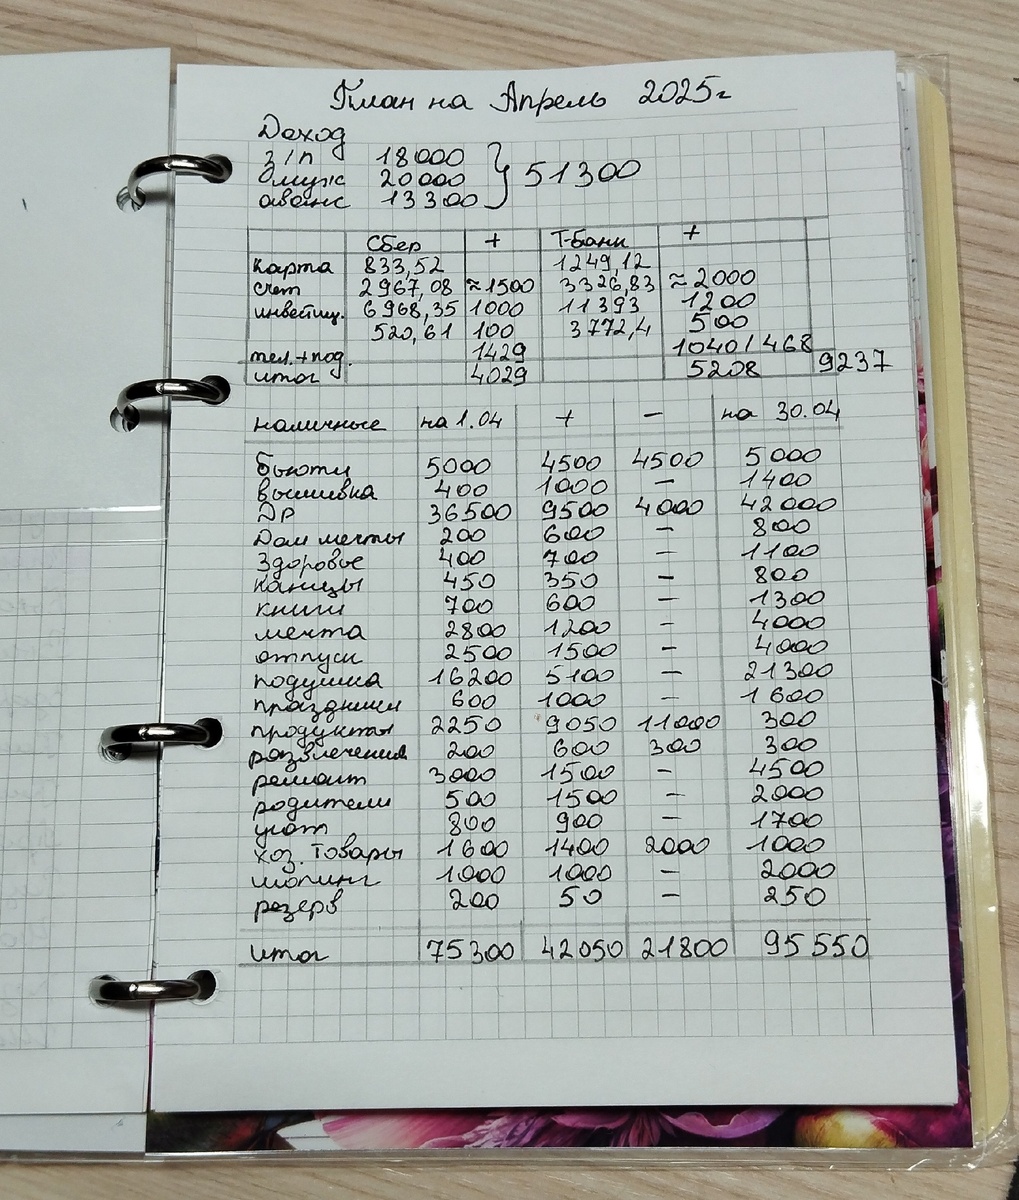 План на Апрель 2025г
Доход
з/п 18000
Ømуж 20000 } 51300
аванс 13300
Сбер + Т-Банк +
карта 833,52 1249,12
счет 2967,08 ≈1500 3326,83 ≈2000
инвестиц. 6968,35 1000 11393 1200
520,61 100 3772,4 500
тел.+под. 1429 1040/468
итог 4029 5208 9237
наличные на 1.04 + - на 30.04
Бьюти 5000 4500 4500 5000
вышивка 400 1000 - 1400
ДР 36500 9500 4000 42000
Дом мечты 200 600 - 800
Здоровье 400 700 - 1100
канцы 450 350 - 800
книги 700 600 - 1300
мечта 2800 1200 - 4000
отпуск 2500 1500 - 4000
подушка 16200 5100 - 21300
праздники 600 1000 - 1600
продукты 2250 9050 11000 300
развлечения 200 600 300 300
ремонт 3000 1500 - 4500
родители 500 1500 - 2000
уют 800 900 - 1700
хоз. товары 1600 1400 2000 1000
шопинг 1000 1000 - 2000
резерв 200 50 - 250
итог 75300 42050 21800 95550